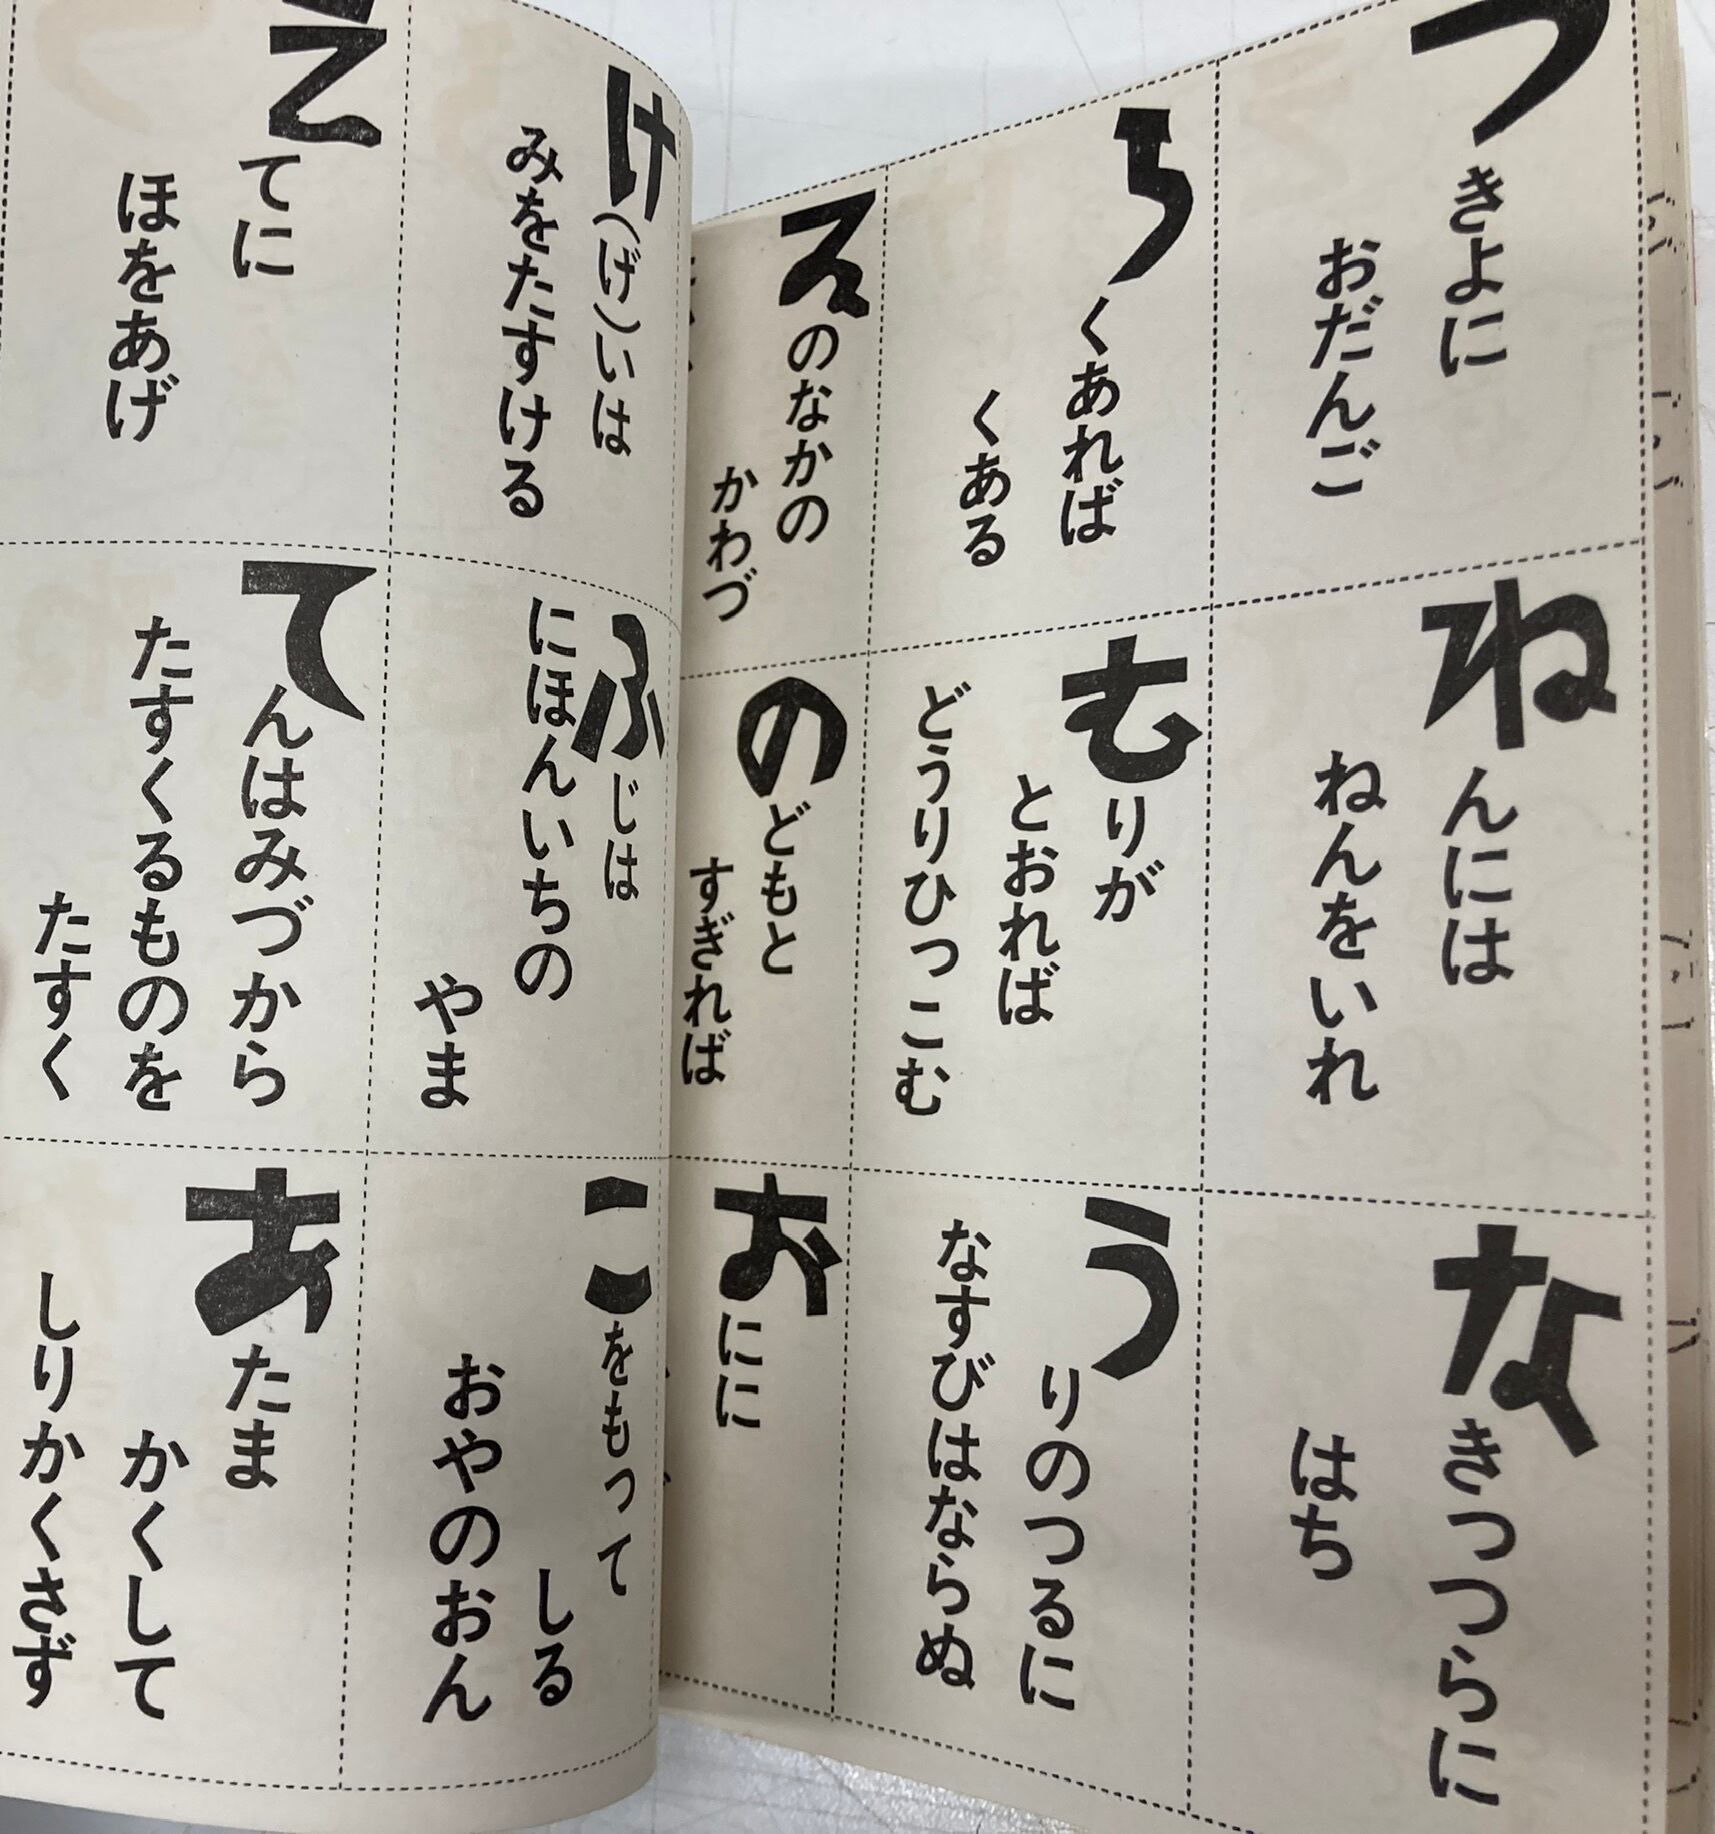 つきよに
おだんご
ねんには
ねんをいれ
なきつつらに
はち
らくあれば
くある
むりが
とおれば
どうりひっこむ
うりのつるに
なすびはならぬ
ゐのなかの
かわづ
のどもと
すぎれば
おにに
け(げ)いは
みをたすける
ふじは
にほんいちの
やま
こをもって
しる
おやのおん
えてに
ほをあげ
てんはみづから
たすくるものを
たすく
あたま
かくして
しりかくさず